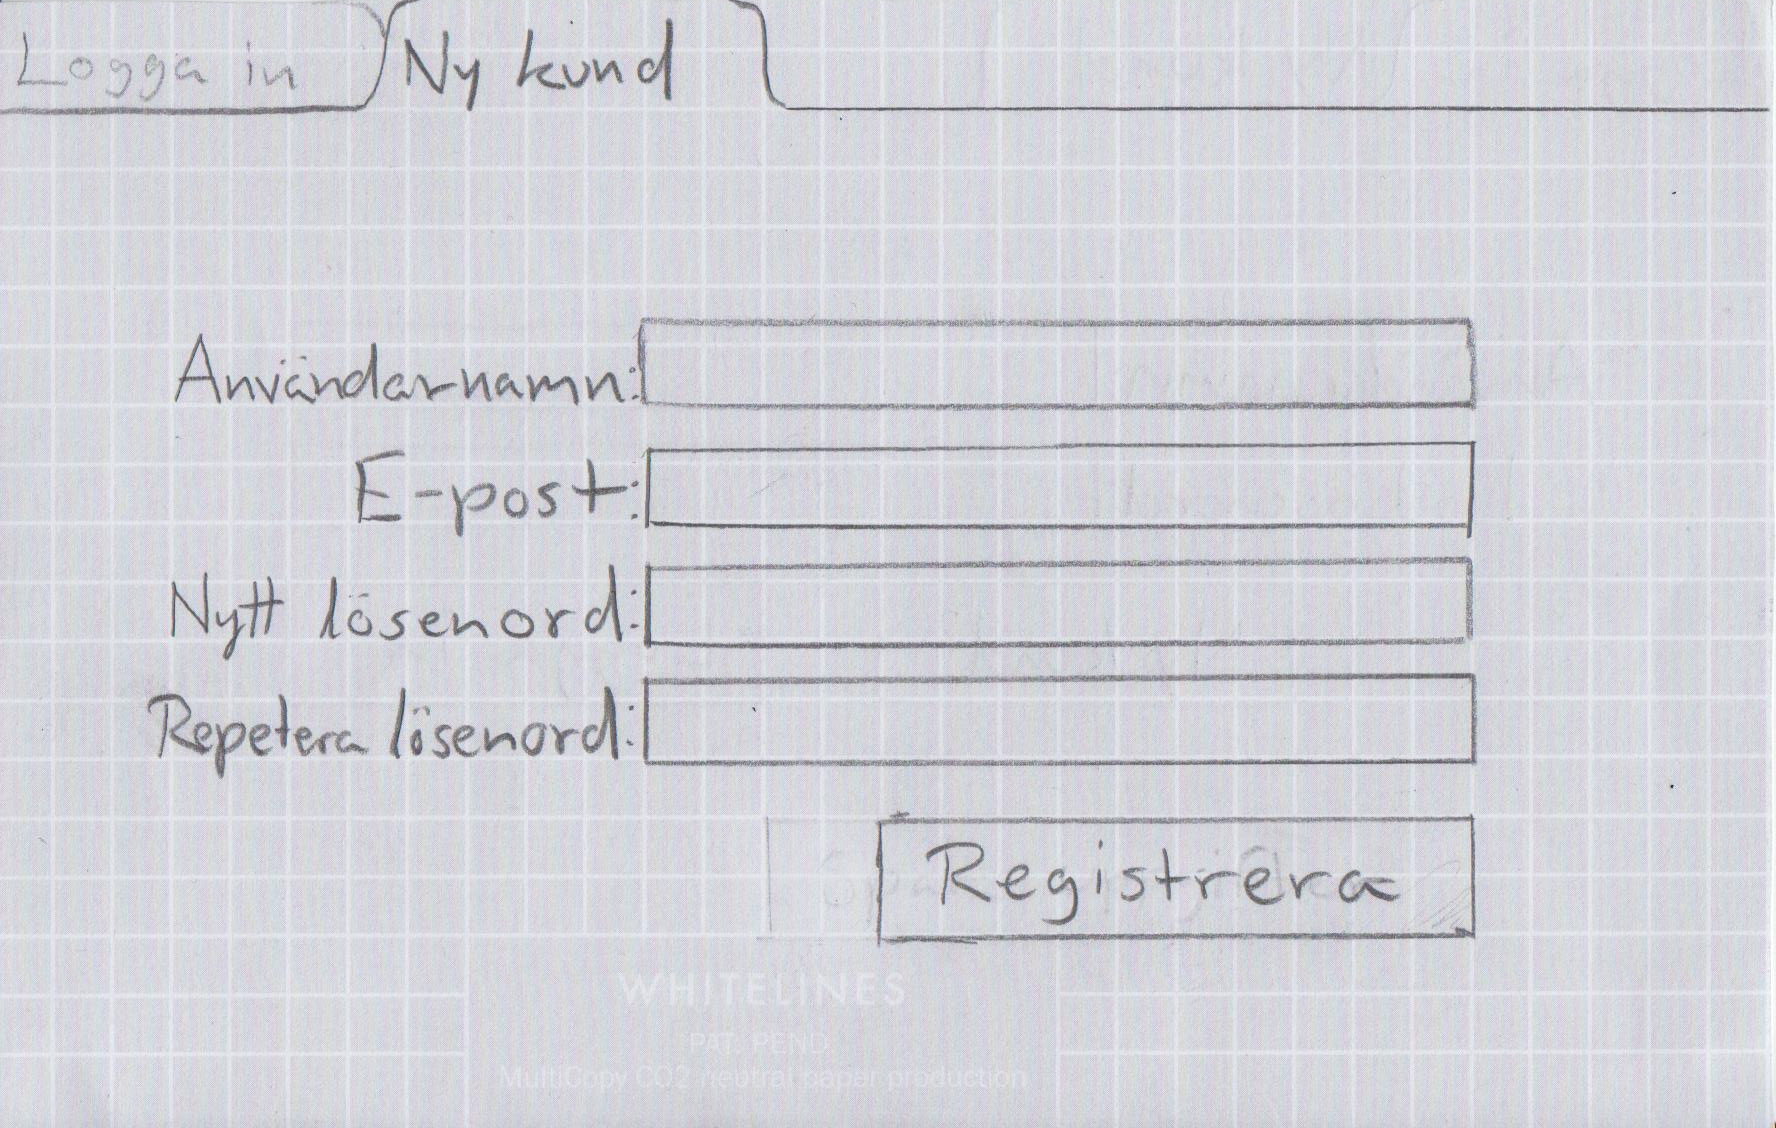 Logga in Ny kund
Användarnamn:
E-post:
Nytt lösenord:
Repetera lösenord:
Registrera
WHITELINES
PAT. PEND
MultiCopy CO2 neutral paper production